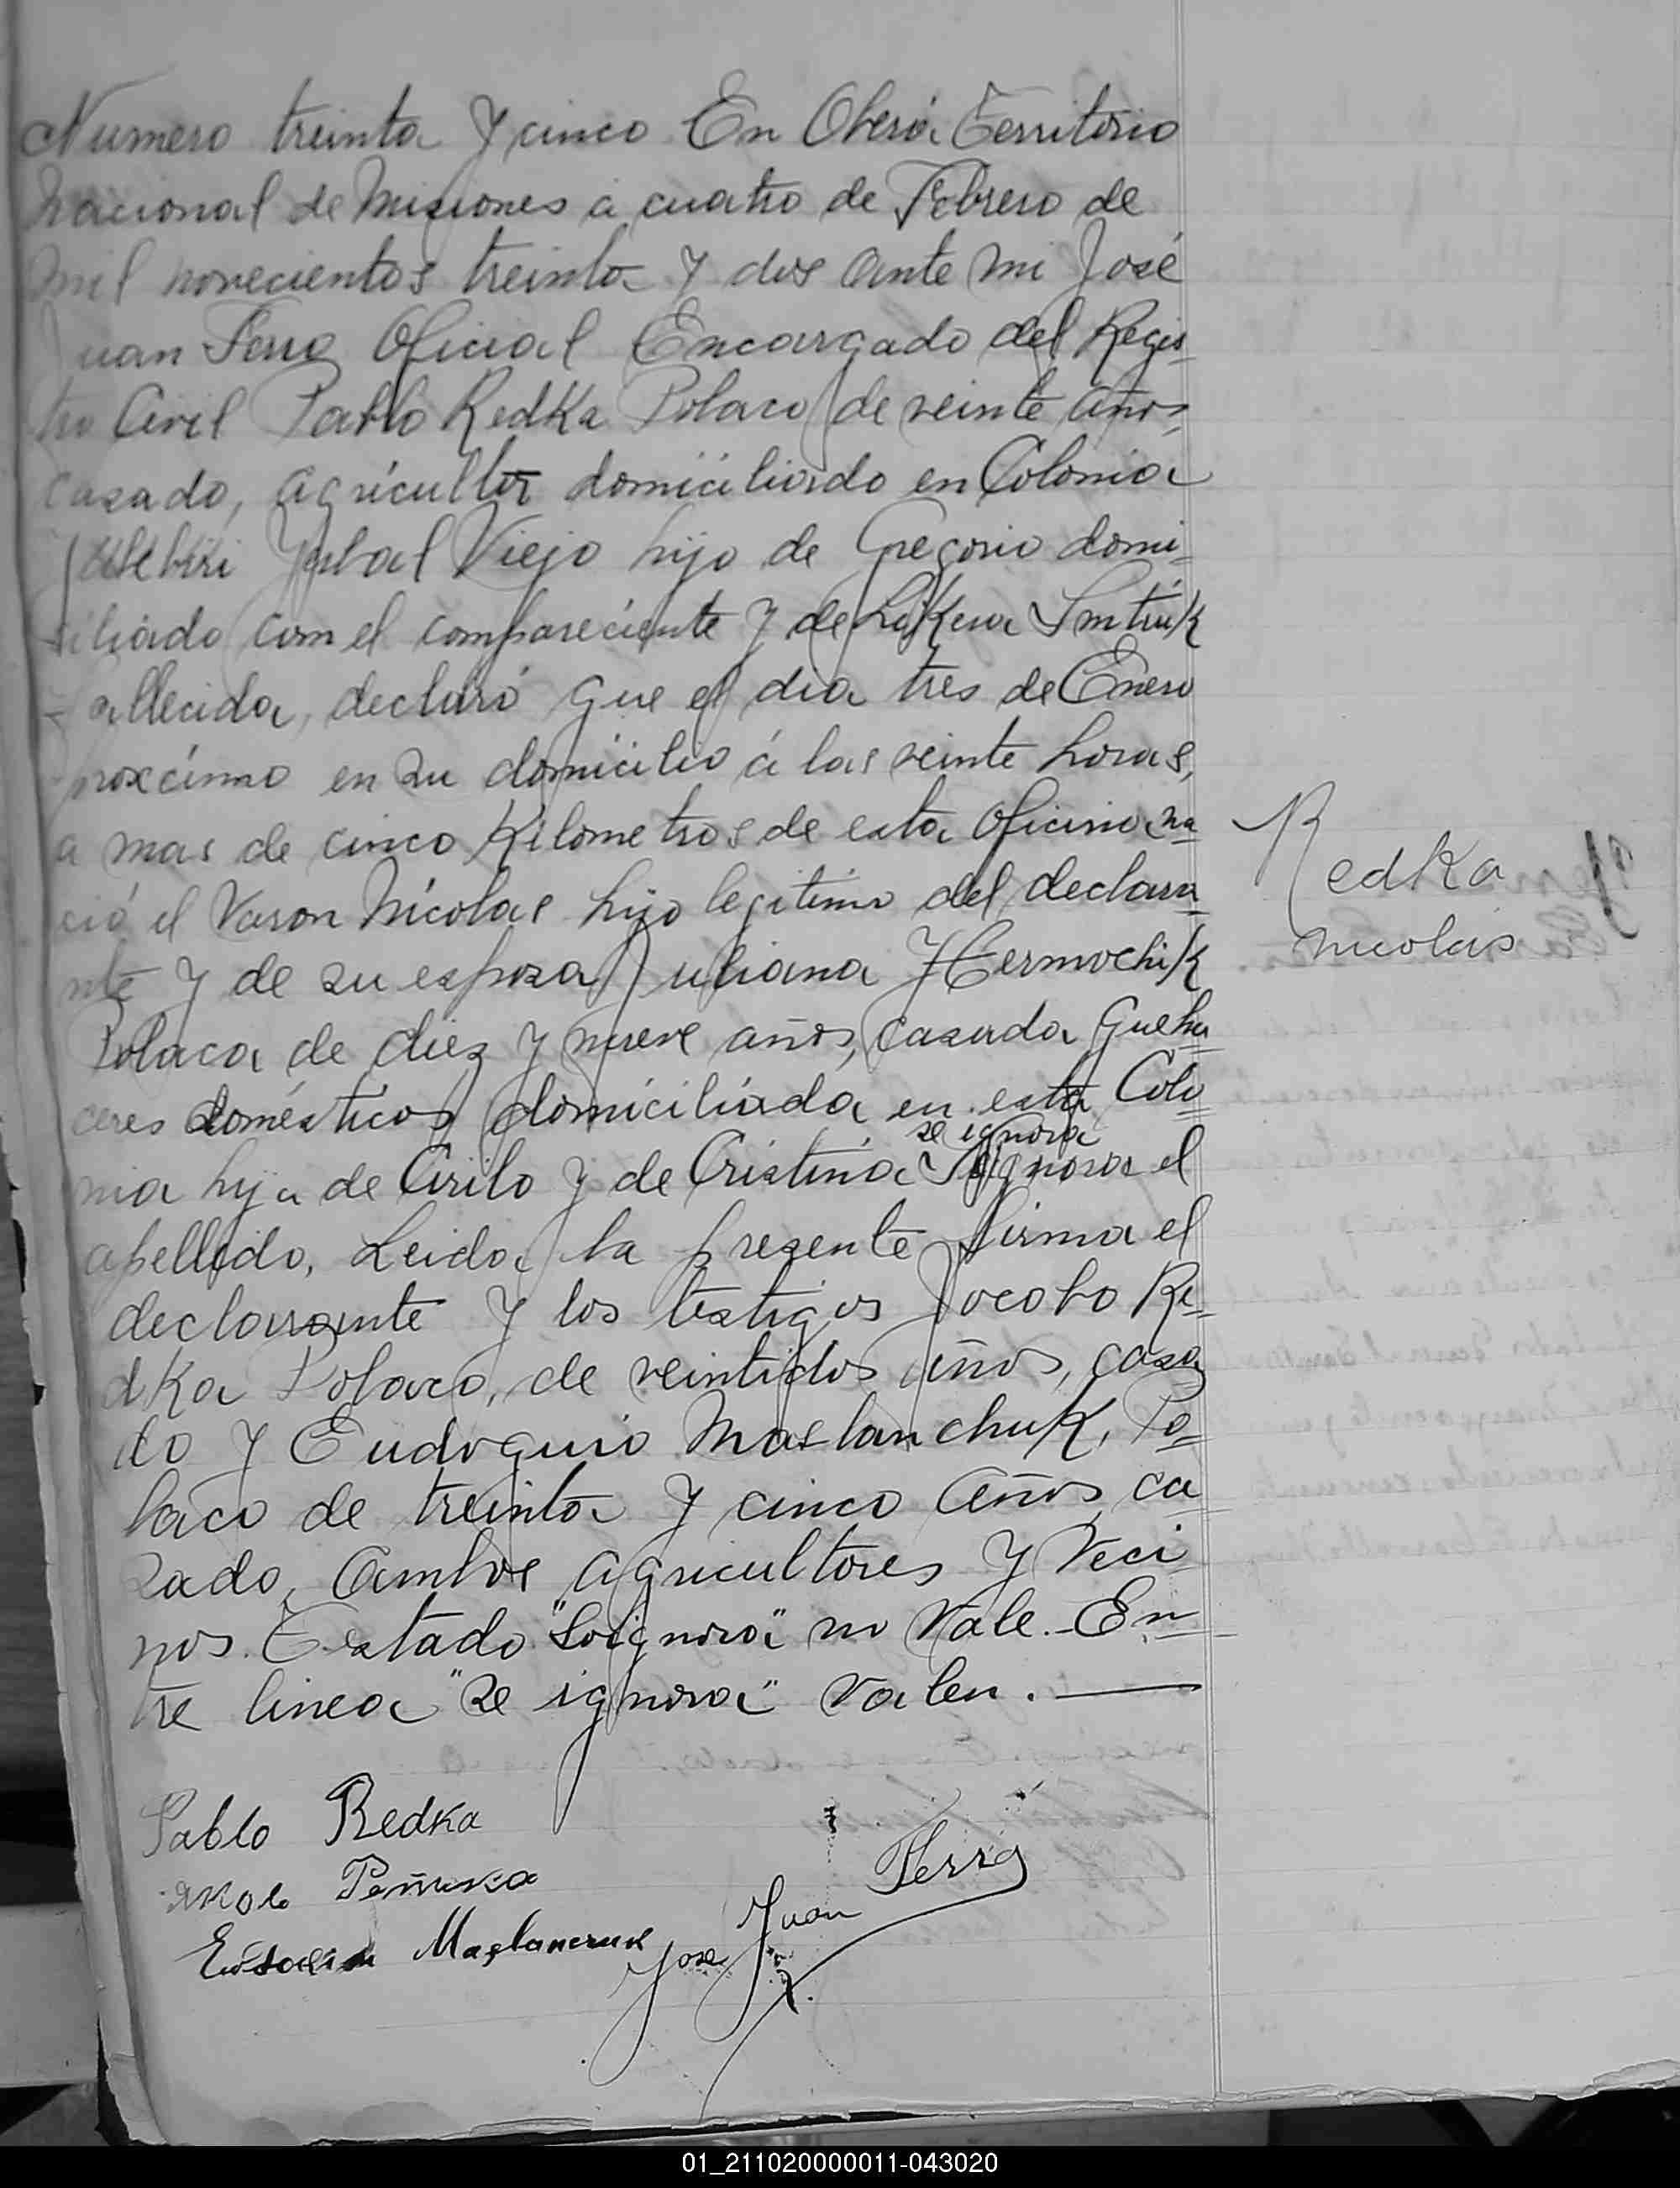 Numero treinta y cinco En Oberá Territorio
Nacional de Misiones á cuatro de Febrero de
mil novecientos treinta y dos ante mi José
Juan Ferro Oficial Encargado del Regis-
tro Civil Pablo Redka Polaco de veinte años
casado, agricultor domiciliado en Colonia
Yerbal Viejo hijo de Gregorio domi-
siliado com el compareciente y de
fallecida, declaró que el dia tres de Enero
proxcimo en su domicilio á las veinte horas,
a mas de cinco Kilometros de esta Oficina na
ció el Varon Nicolas hijo legitimo del declara
nte y de su esposa Juliana Hermochik
Polaca de diez y nueve años, casada queha
ceres domésticos domiciliada en esta Colo
se ignora
nia hija de Cirilo y de Cristina el
apellido, Leida la presente firma el
declarante y los testigos Jocobo Re-
dka Polaco, de veintidos años, casa
do y Eudoquio Maslanchuk, Po-
laco de treinta y cinco años, ca
sado, ambos agricultores y Veci
nos. Testado "Soignora" no Vale.- En-
tre linea "se ignora" valen.
Redka
Nicolás
Pablo Redka
Maslanczuk
José Juan Ferro
01_211020000011-043020